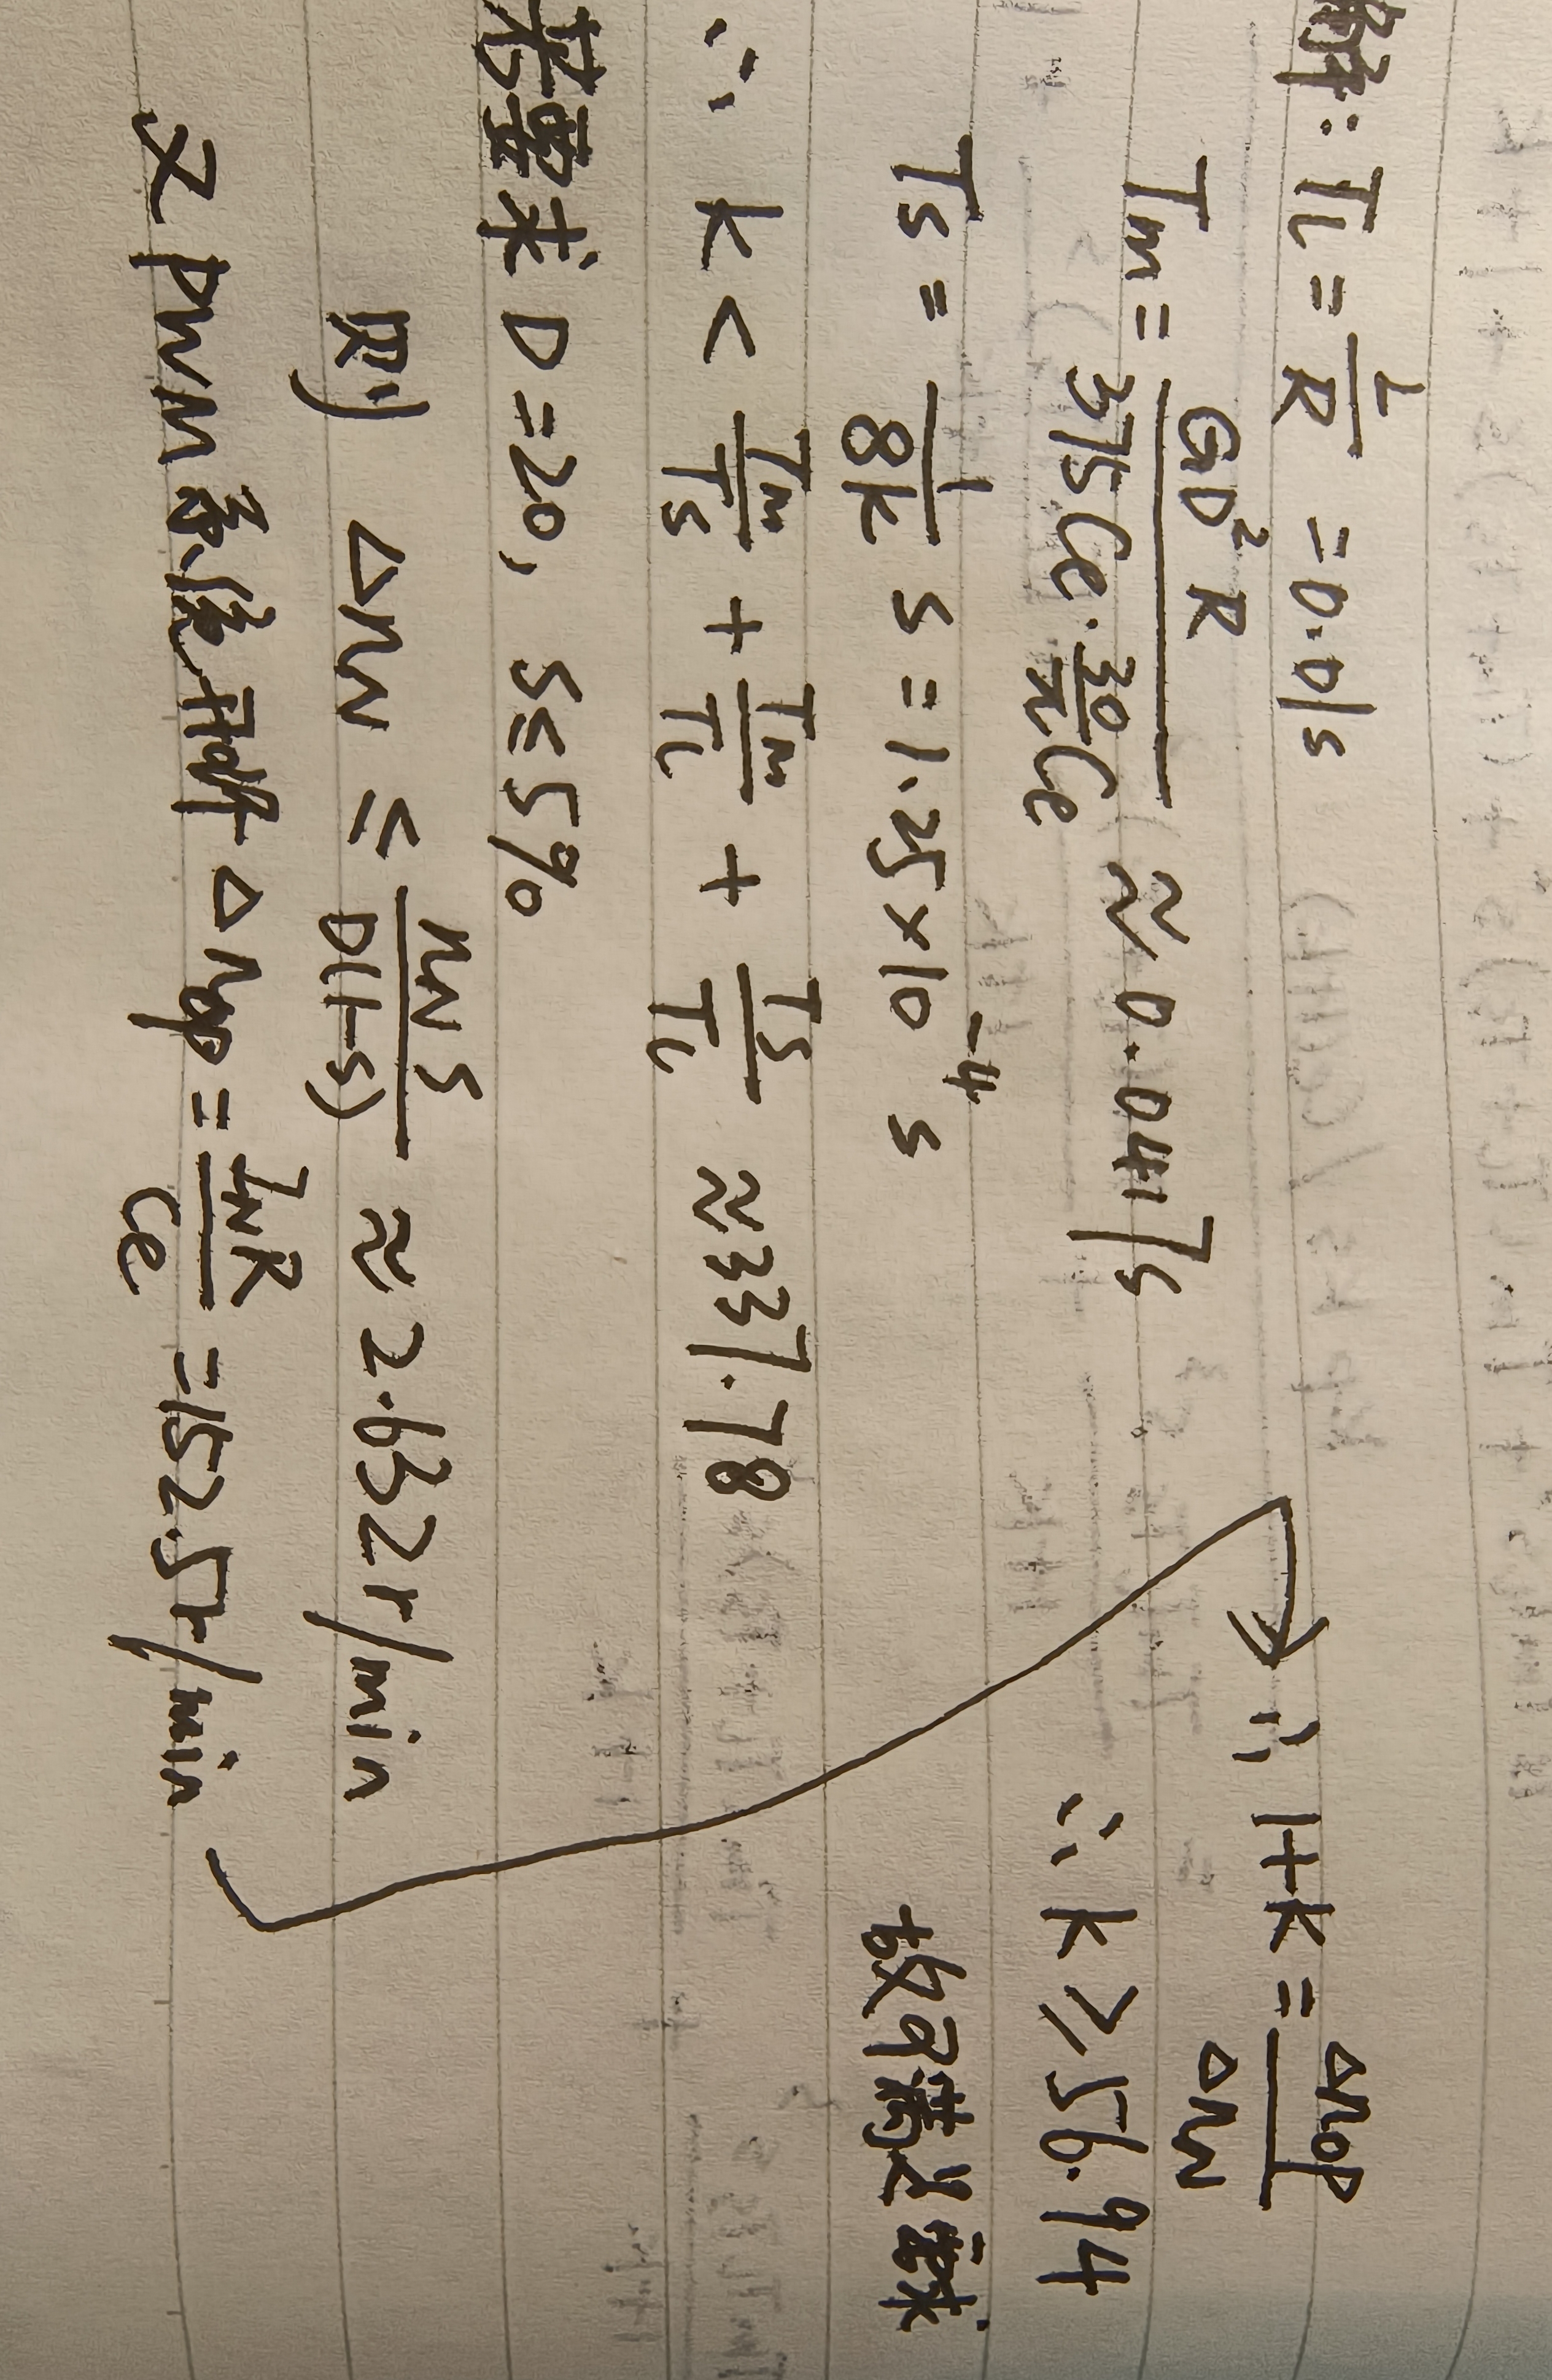 解: Tl = L/R = 0.01s
Tm = GD²R / 375Ce·30/π Ce ≈ 0.0417s
Ts = 1/8k s = 1.25×10⁻⁴ s
∴ k < Tm/Ts + Tm/Tl + Ts/Tl ≈ 337.78
若要求 D=20, s≤5%
则 ΔnN ≤ nN s / D(1-s) ≈ 2.632r/min
又 PWM系统开环 Δnop = INR/Ce = 152.5r/min
∴ 1+k = Δnop/ΔnN
∴ k ≥ 56.94
故可满足要求